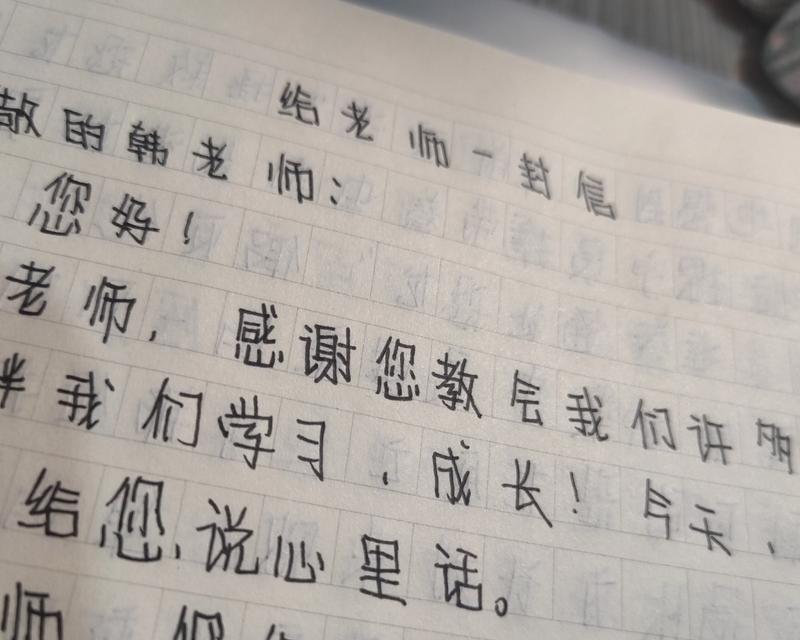 给老师一封信
敬的韩老师:
您好!
老师,感谢您教会我们许多
伴我们学习,成长!今天,
给您,说心里话。
师